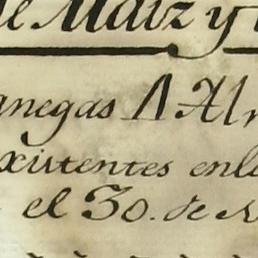 de Maiz y
anegas A Al
xistentes en l
el 30. de N